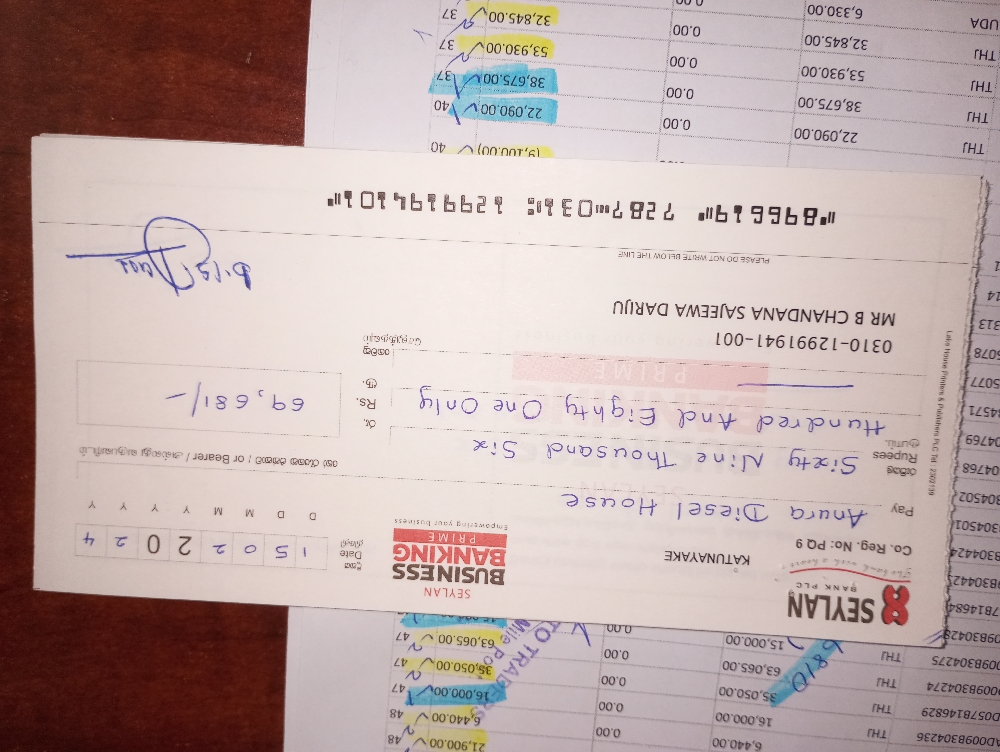 SEYLAN
BANK PLC
The bank with a heart
Co. Reg. No: PQ 9
KATUNAYAKE
SEYLAN
BUSINESS
BANKING
PRIME
Empowering your business
Date
1 5 0 2 2 0 2 4
D D M M Y Y Y Y
Pay Anura Diesel House
or Bearer
Rupees Sixty Nine Thousand Six
Hundred And Eighty One Only
Rs. 69,681/-
0310-12991941-001
MR B CHANDANA SAJEEWA DARIJU
PLEASE DO NOT WRITE BELOW THE LINE
"896619" 7287"'031: 1299194101"
THJ 22,090.00 0.00 22,090.00 40
THJ 38,675.00 0.00 38,675.00 37
THJ 53,930.00 0.00 53,930.00 37
THJ 32,845.00 0.00 32,845.00 37
UDA 6,330.00 0.00
(9,100.00) 40
6,440.00 0.00 21,900.00 48
AD009B304236 THJ 16,000.00 0.00 6,440.00 48
D057B146829 THJ 35,050.00 0.00 16,000.00 47
009B304274 THJ 63,065.00 0.00 35,050.00 47
009B304275 THJ 15,000.00 0.00 63,065.00 47
6810